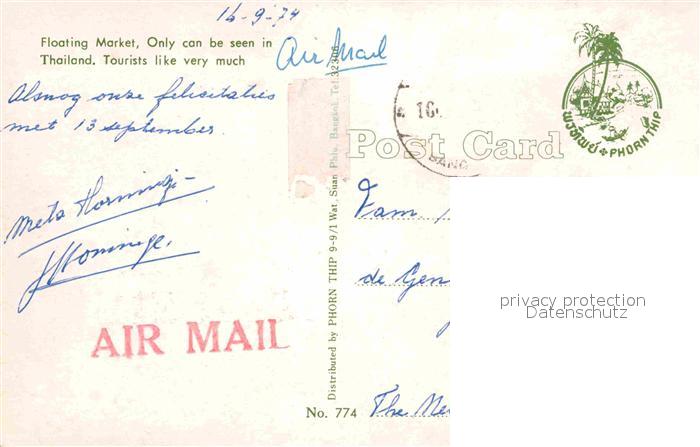 16-9-74
Floating Market, Only can be seen in
Thailand. Tourists like very much
Air Mail
Alsnog onze felicitaties
met 13 september.
AIR MAIL
Distributed by PHORN THIP 9-9/1 Wat. Suan Phlu, Bangkok, Tel. 32306
Post Card
16
BANG
พรทิพย์ PHORN THIP
Fam.
de Gen
The Ne
No. 774
privacy protection
Datenschutz